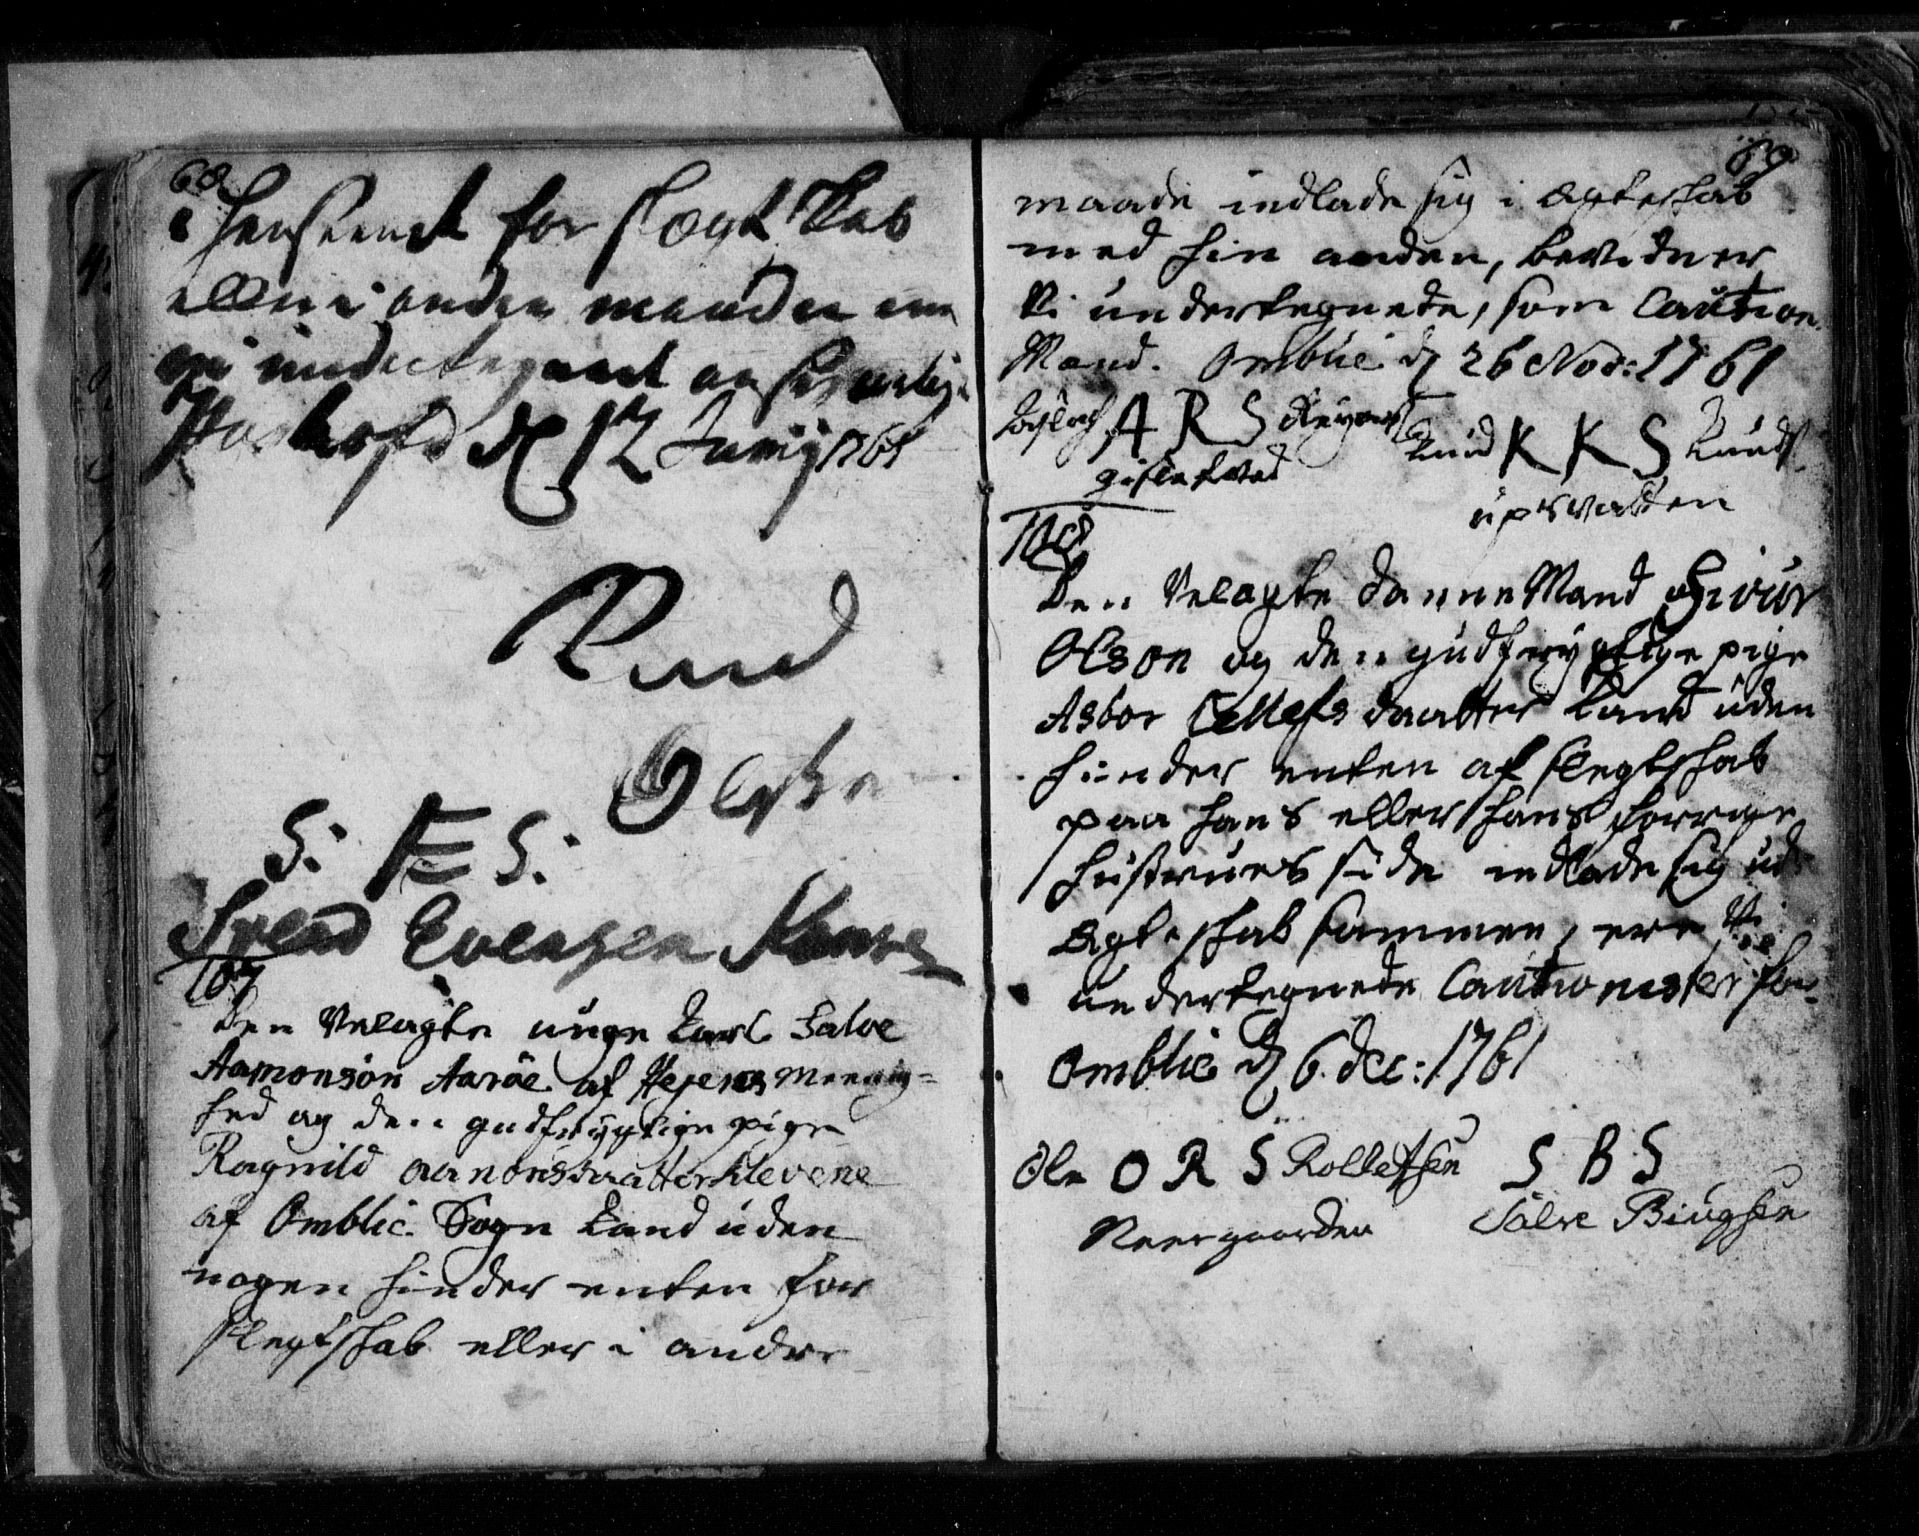 68
i henseende for slægtskab
eller i anden maader ere
vi undertegnede ansvarlig
d 12 Junij 1761
Knud
Olsen
S: E S:
Svend Evensen
107
Den Velagte unge Karl Salve
Aamonsøn Aaröe af Hejernes Meenig=
hed og den gudfrygtige pige
Ragnild aanonsdaatter Klevene
af Omblie Sogn kand uden
nogen hinder enten for
slegtskab eller i andre
69
maade indlade sig i Ægteskab
med hin anden, bevidner
Vi undertegnede, som Caution
Mænd. Omblie d 26 Nov: 1761
A R S
Knud K K S Knuds
Gifletved
upsvatten
108
Den Velagte Danne Mand Sivur
Olson og den gudfrygtige pige
Asbor Tellefs daatter kand uden
hinder enten af slegtskab
paa hans eller hans forrige
hustrues side indlade sig ud
Ægteskab sammen, ere Vi
undertegnede Cautionister for
Omblie d 6 dec: 1761
Ole O R S Rollefsen S B S
Neergaarden Salve Biugsen